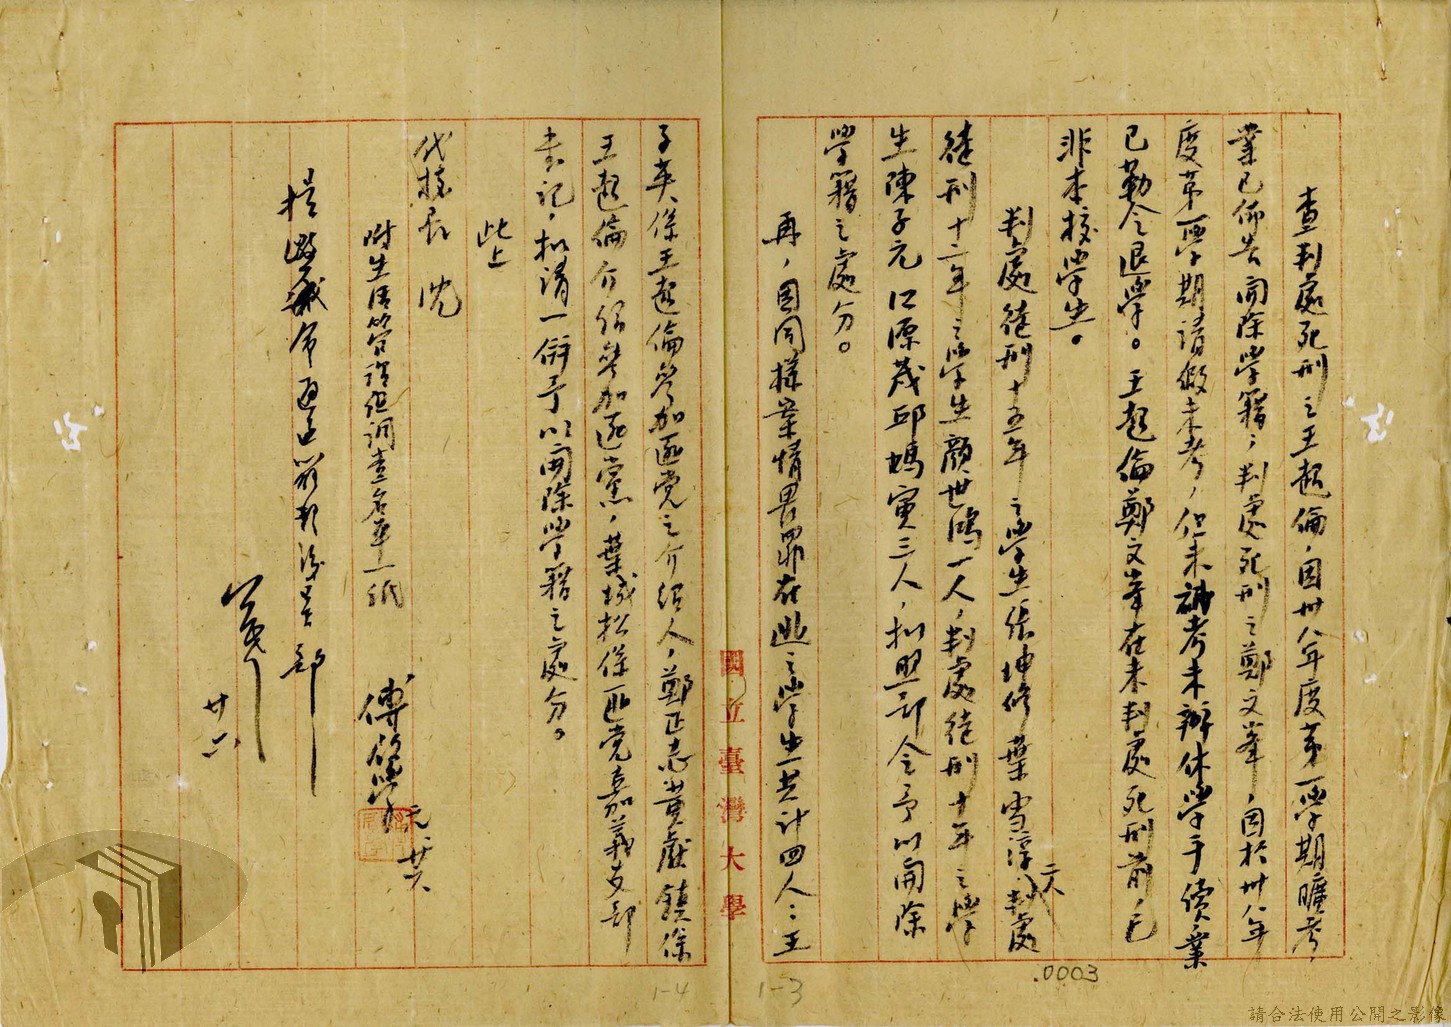 查判處死刑之王超倫，因卅八年度第一學期曠考，
業已佈告開除學籍；判處死刑之鄭文峯，因於卅八年
度第一學期請假未考，但未補考未辦休學手續，業
已勒令退學。王超倫鄭文峯在未判處死刑前，已
非本校學生。
判處徒刑十五年之學生張坤修葉雪淳二人，判處
徒刑十二年之學生顏世鴻一人，判處徒刑十年之學
生陳子元江源茂邱媽寅三人，擬照部令予以開除
學籍之處分。
再，因同樣案情畏罪在逃之學生共計四人：王
子英係王超倫參加匪党之介紹人，鄭正忠黃獻鎮係
王超倫介紹參加匪黨，葉城松係匪党嘉義支部
書記，擬請一併予以開除學籍之處分。
此上
代校長 沈
附生活管理組調查名單一紙
傅啓學 元、廿六
廿六
國立臺灣大學
.0003
1-4
1-3
請合法使用公開之影像